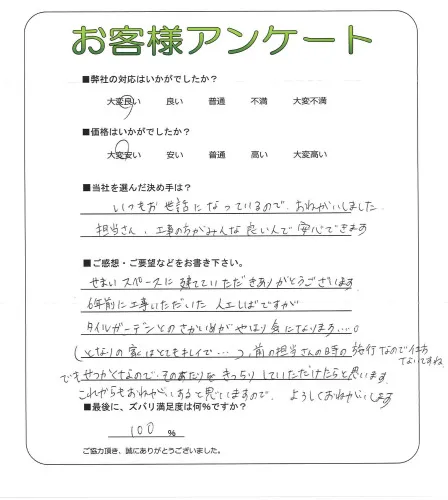 お客様アンケート
■弊社の対応はいかがでしたか?
大変良い 良い 普通 不満 大変不満
■価格はいかがでしたか?
大変安い 安い 普通 高い 大変高い
■当社を選んだ決め手は?
いつもお世話になっているので、おねがいしました
担当さん、工事の方がみんな良い人で安心できます
■ご感想・ご要望などをお書き下さい。
せまいスペースに建てていただきありがとうございます
6年前に工事いただいた人工しばですが
タイルガーデンとのさかいめがやはり気になります…。
(となりの家はとてもキレイで…)、前の担当さんの時の施行なので仕方ないですね
でもせっかくなので、そのあたりをきっちりしていただけたらと思います
これからもおねがいすると思っていますので、よろしくおねがいします
■最後に、ズバリ満足度は何%ですか?
100 %
ご協力頂き、誠にありがとうございました。